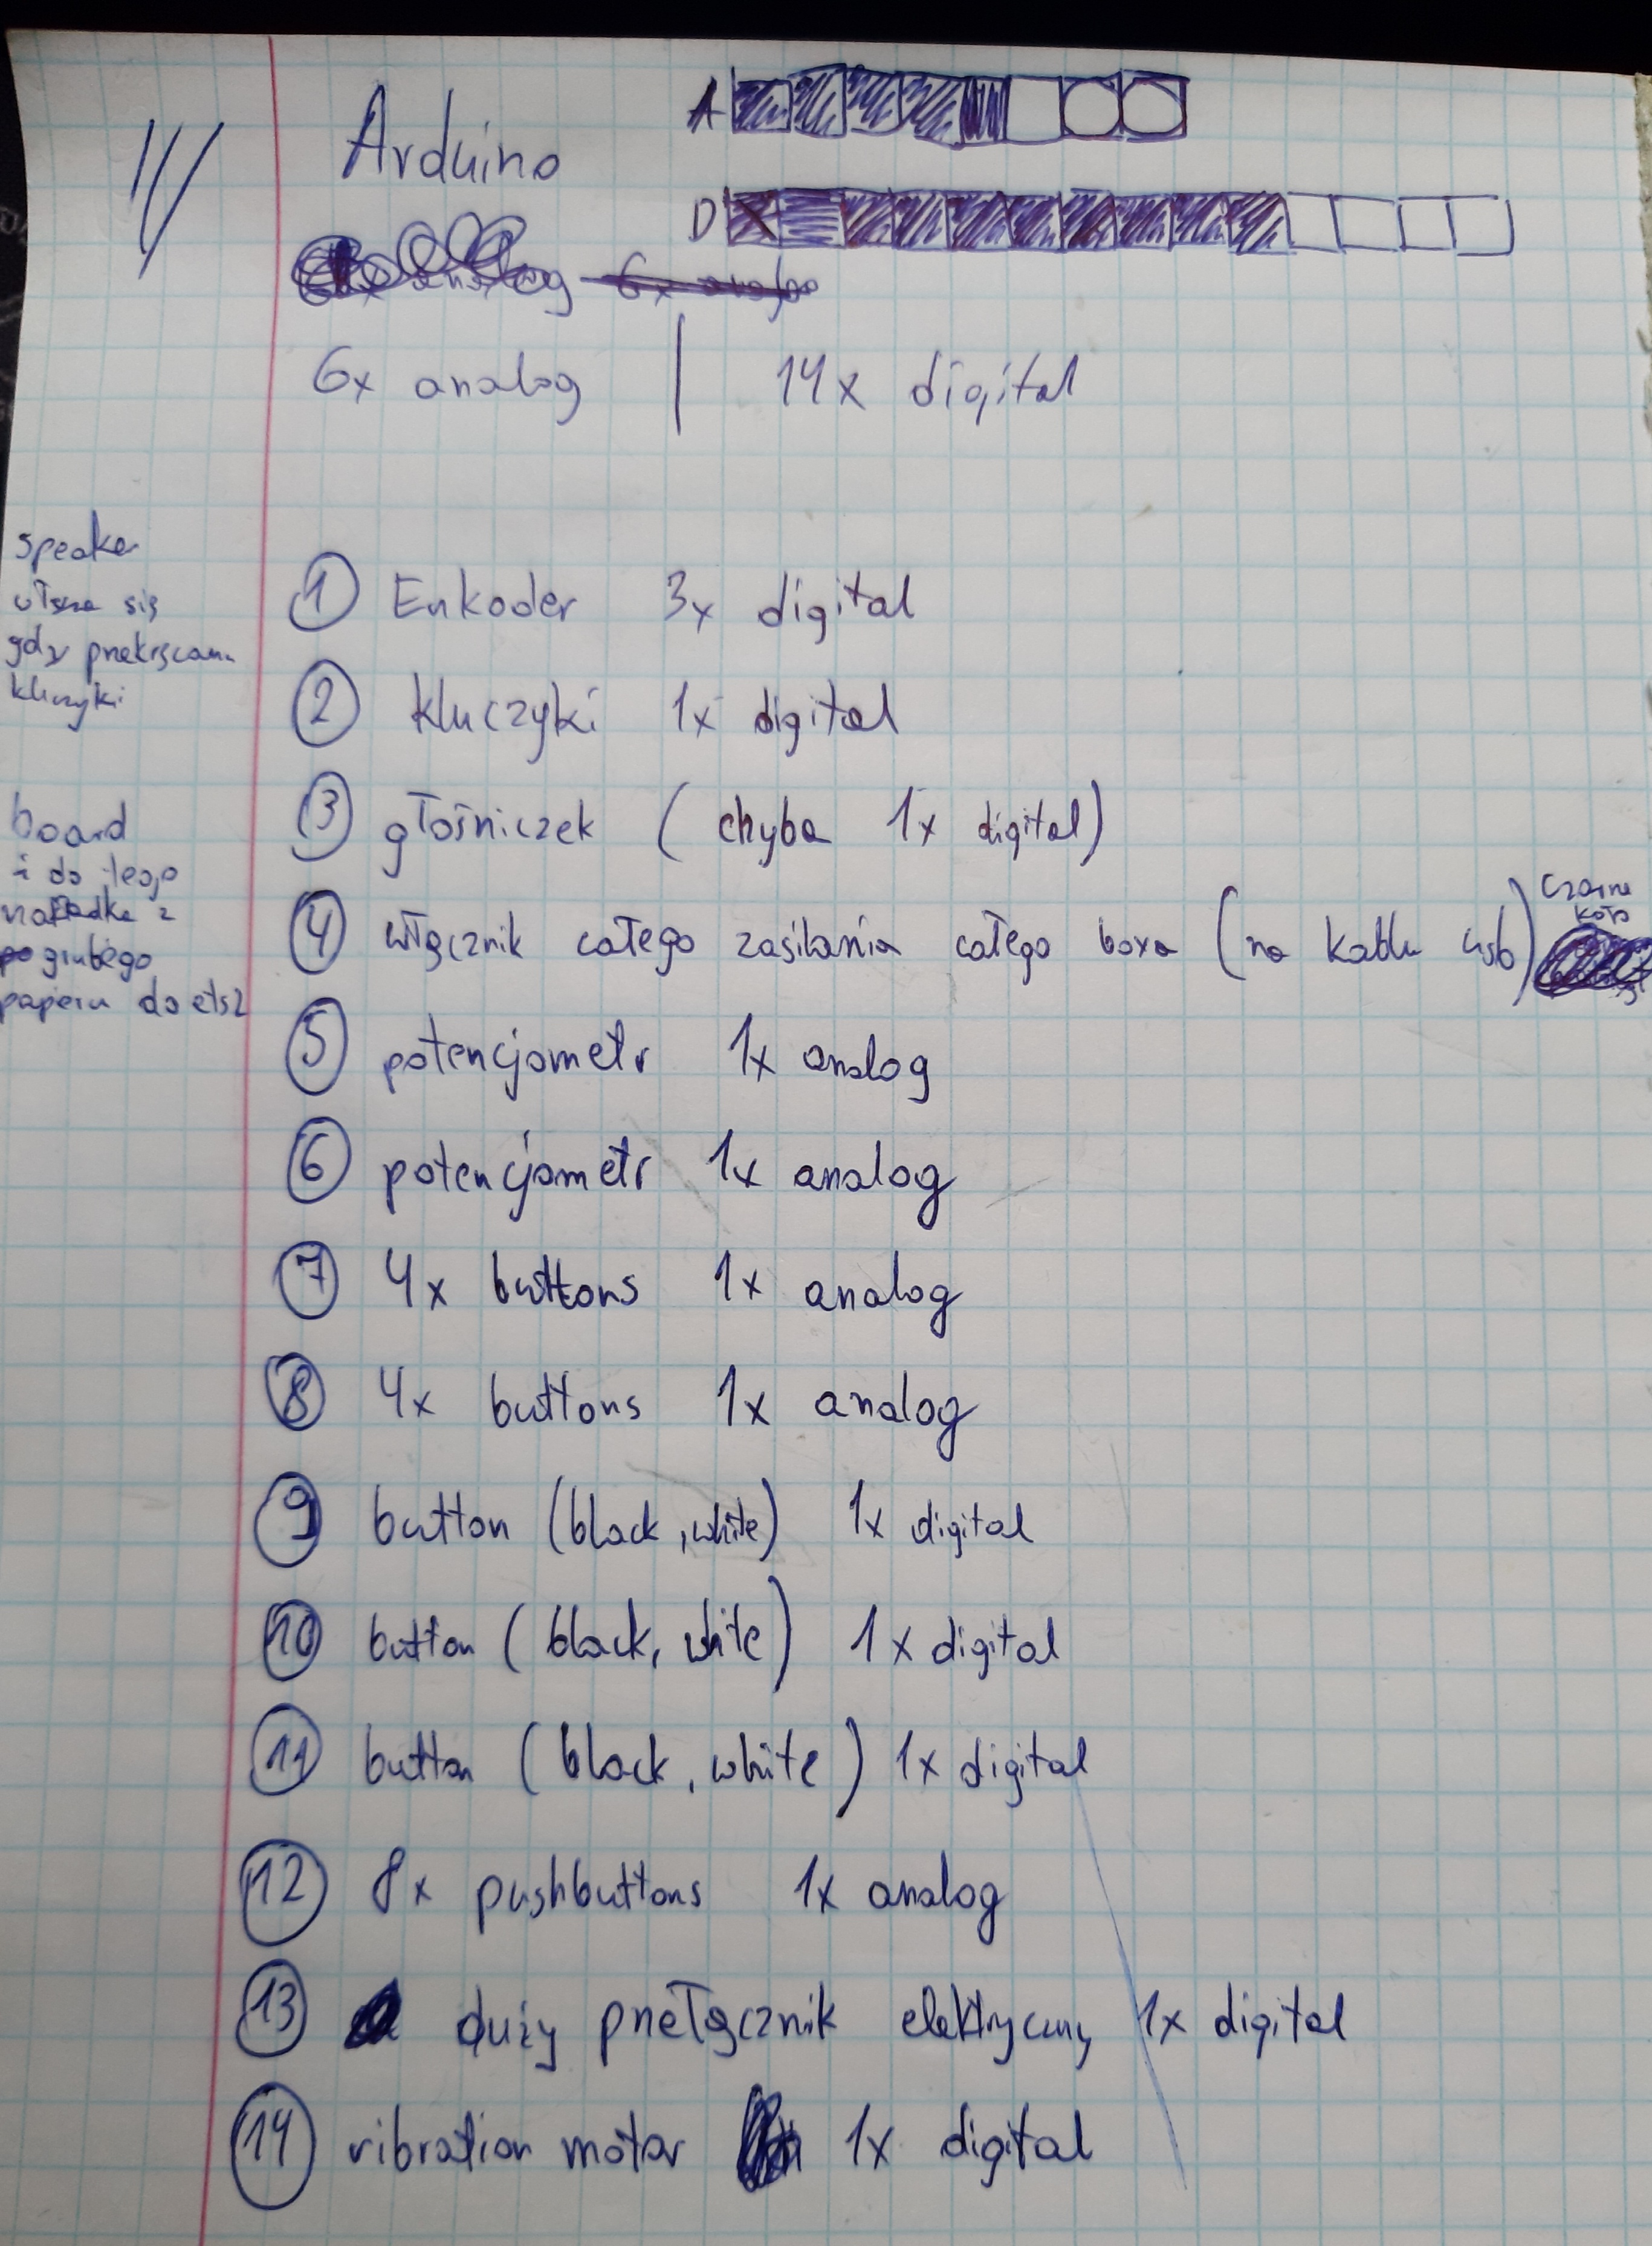 A
Arduino
D
6x analog | 14x digital
speaker
włącza się
gdy przekręcam
kluczyki
board
i do tego
nakładka z
grubego
papieru do
① Enkoder 3x digital
② kluczyki 1x digital
③ głośniczek (chyba 1x digital)
④ włącznik całego zasilania całego boxa (na kablu usb) czarne
koło
⑤ potencjometr 1x analog
⑥ potencjometr 1x analog
⑦ 4x buttons 1x analog
⑧ 4x buttons 1x analog
⑨ button (black, white) 1x digital
⑩ button (black, white) 1x digital
⑪ button (black, white) 1x digital
⑫ 8x pushbuttons 1x analog
⑬ duży przełącznik elektryczny 1x digital
⑭ vibration motor 1x digital